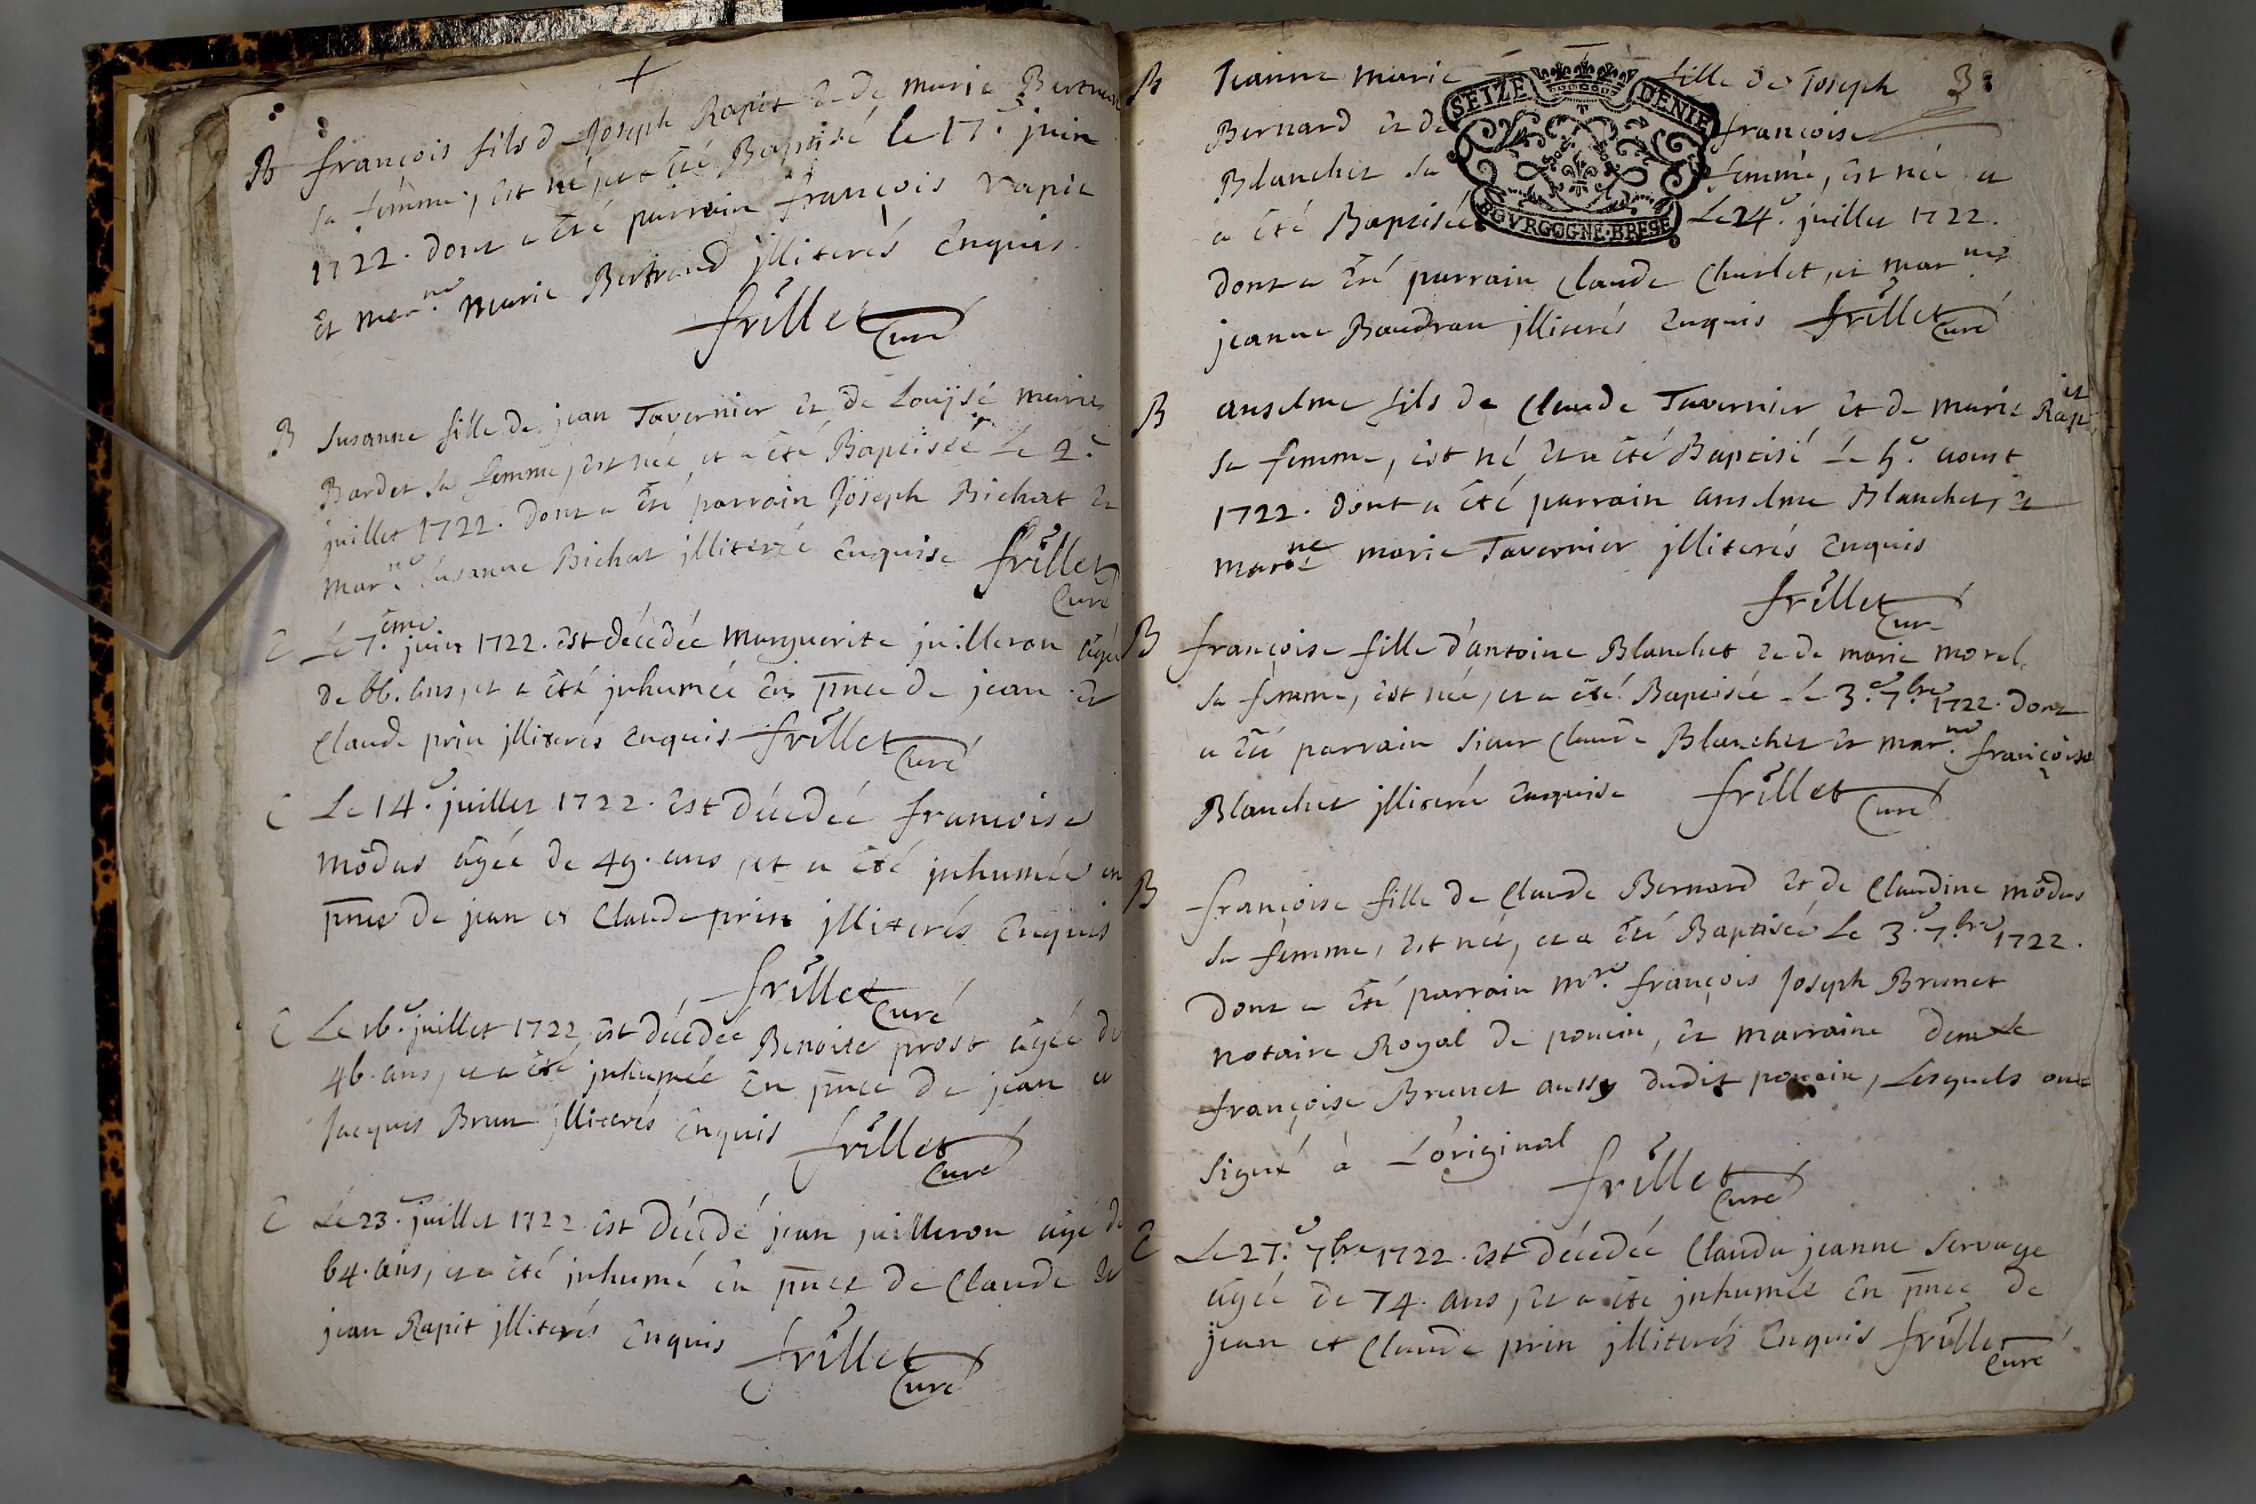 B françois fils d Joseph Rapit & de marie Bertrand
sa femme, est né, et a été Baptisé le 17.e juin
1722. dont a été parrain françois Rapit
Et mar.ne marie Bertrand jlliterés Enquis
frillet
Curé
B Susanne fille de jean Tavernier et de Louÿse marie
Bardet sa femme, est née, et a été Baptisée Le 2.e
juillet 1722. dont a été parrain Joseph Bichat et
mar.ne Susanne Bichat jlliterée Enquise frillet
Curé
C Le 7.eme juin 1722. est décedée Marguerite juilleron âgée
de 66. ans, et a été jnhumée En pnce de jean et
Claude prin jlliterés Enquis frillet
Curé
C Le 14.e juillet 1722. est décedée françoise
môdas âgée de 49. ans, et a été jnhumée en
pnce de jean et Claude prin jlliterés Enquis
frillet
Curé
C Le 16.e juillet 1722 est décedée Benoite prost âgée de
46. ans, et a été jnhumée En pnce de jean et
Jacques Brun jlliterés Enquis frillet
Curé
C Le 23.e juillet 1722 est décedé jean juilleron âgé de
64. ans, et a été jnhumé En pnce de Claude et
jean Rapit jlliterés Enquis frillet
Curé
B Jeanne marie fille de Joseph 3
Bernard et de françoise
Blanchet sa femme, est née et
a été Baptisée Le 24.e juillet 1722.
dont a été parrain Claude Charlet, et mar.ne
jeanne Baudran jlliterés Enquis frillet
Curé
SEIZE DENIE
BOVRGOGNE·BRESE
B anselme fils de Claude Tavernier et de marie Rapit
sa femme, est né et a été Baptisé le 5.e aoust
1722. dont a été parrain anselme Blanchet, et
mar.ne marie Tavernier jlliterés Enquis
frillet
Cur
B françoise fille d'antoine Blanchet et de marie morel
sa femme, est née, et a été Baptisée le 3.e 7.bre 1722. dont
a été parrain sieur Claude Blanchet et mar.ne françoise
Blanchet jlliterée Enquise frillet
Curé
B françoise fille de Claude Bernard et de Claudine môdas
sa femme, est née, et a été Baptisée Le 3.e 7.bre 1722.
dont a été parrain m.re françois Joseph Brunet
notaire Royal de poncin, et marraine demlle
françoise Brunet aussy dudit poncin, Lesquels ont
signé à L'original frillet
Curé
C Le 27.e 7.bre 1722. est décedée Clauda jeanne servage
âgée de 74. ans, et a été jnhumée En pnce de
jean et Claude prin jlliterés Enquis frillet
Curé